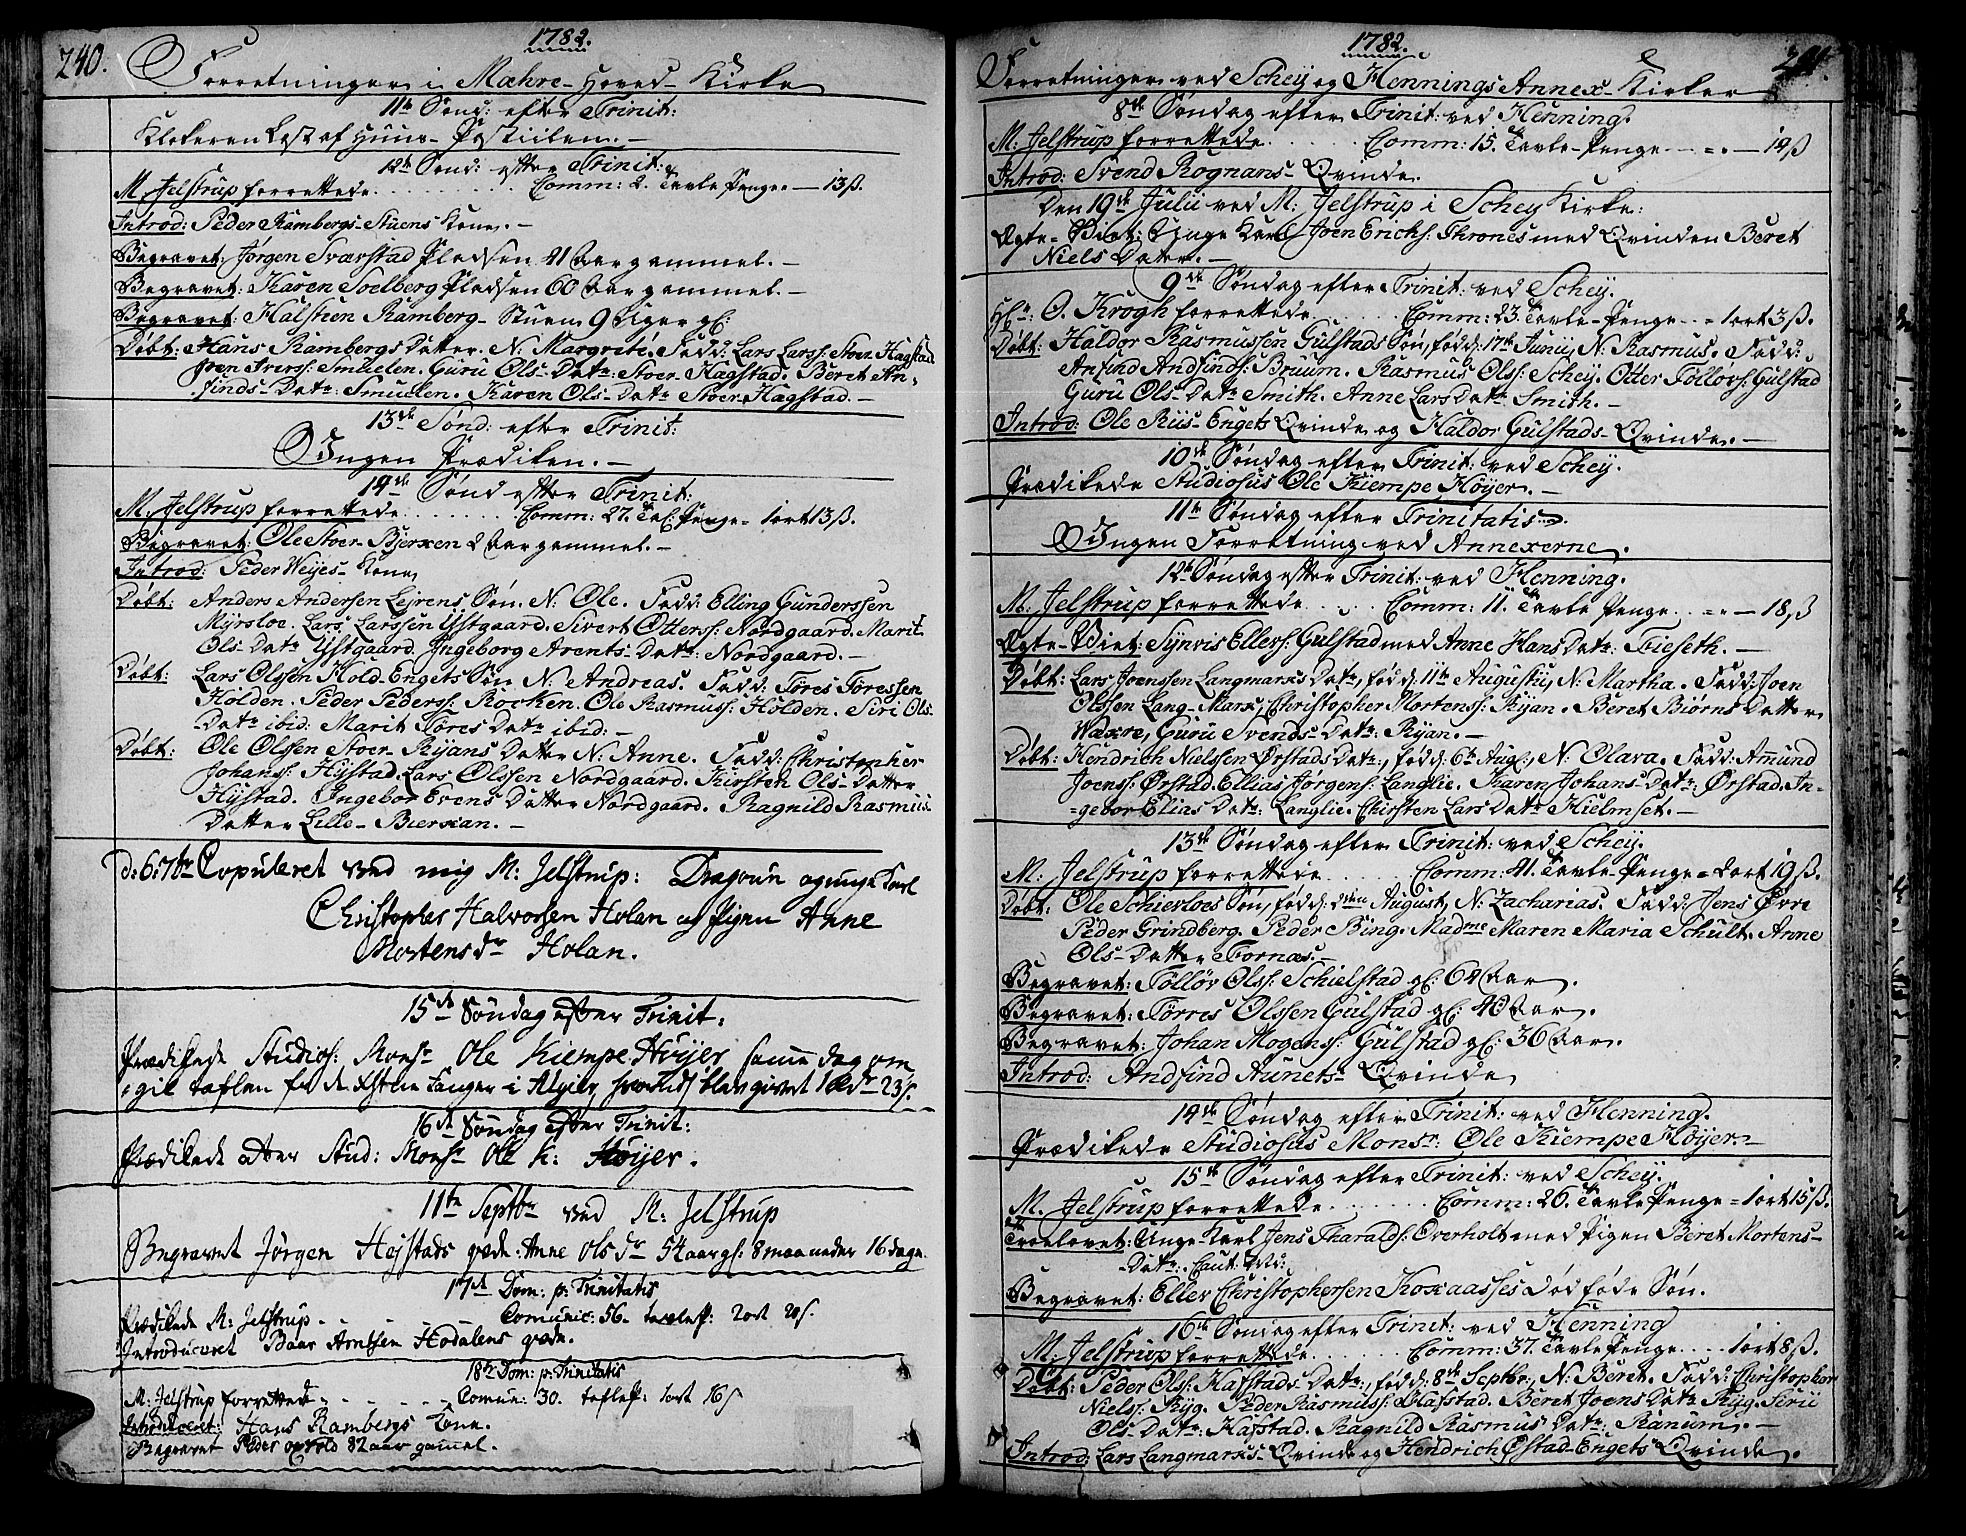 240.
1782.
Forretninger i Mæhre-Hoved-Kirke
11te Sønd: efter Trinit:
Klokeren Lest af Huus-Postillen. –
12te Sønd: efter Trinit:
M. Jelstrup forrettede. Comm: 2. Tavle Penge. – 13ß.
Introd: Peder Rambergs-Stuens Kone. –
Begravet: Jørgen Sværstad Pladsen 41 Aar gammel. –
Begravet: Karen Soelberg Pladsen 60 Aar gammel. –
Begravet: Halstien Ramberg-Stuen 9 Uger gl:
Døbt: Hans Rambergs Datter. N: Margrite. Fadd: Lars Larss: Stoer-Hagstad
Smuelen. Guru Ols-Datr: Stoer-Hagstad. Beret An-
finds-Datr Smuelen. Karen Ols-Datr Stoer-Hagstad. –
13de Sønd: efter Trinit:
Ingen Prædiken. –
14de Sønd: efter Trinit:
M. Jelstrup forrettede. Comm: 27. Tafl: Penge = 1 ort 13ß.
Begravet: Ole Stoer-Bjerxen 2 Aar gammel. –
Introd: Peder Weyes-Kone
Døbt: Anders Andersen Lejrens Søn. N: Ole. Fadd: Elling Gunderssen
Myrsloe. Lars Larssen Ystgaard. Sivert Otterss: Nordgaard. Marit
Ols-Datr Ystgaard. Ingeborg Arents-Datr: Nordgaard. –
Døbt: Lars Olssen Hold-Engets Søn N: Andreas. Fadd: Føres Føressen
Holden. Peder Pederss: Rocken. Ole Rasmuss: Holden. Siri Ols-
Datr ibid: Marit Føres Datr ibid: –
Døbt: Ole Olssen Stoer-Ryans Datter N: Anne. Fadd: Christopher
Johanss: Hystad. Lars Olssen Nordgaard. Kirsten Ols-Datter
Hystad. Ingebor Evens Datter Nordgaard. Ragnild Rasmus
Datter Lille-Bierxan. –
d: 6. 7br Copuleret ved mig M: Jelstrup: Dragoun og unge Karl
Christopher Halvorsen Holan og Pigen Anne
Mortensdr Holan.
15de Søndag efter Trinit:
Prædikede Studios: Monsr Ole Kiempe Høyer samme dag om-
gik taflen for de Xstne Fanger i Algier, blev givet 1 23ß.
16de Søndag efter Trinit:
Prædikede atter Stud: Monsr Ole K: Høyer.
11te Septbr ved M: Jelstrup
Begravet Jørgen Hejstads qvde: Anne Olsdr 54 aar gl: 8 maaneder 16 dage.
17de Dom: p: Trinitatis
Prædikede M: Jelstrup - - - Comunic: 56. tavlep: 2 ort 20ß.
Introduceret Baar Arntsen Hodalens qvde.
18de Dom: p: Trinitatis
M: Jelstrup forrettede - - - Comun: 30. taflep: 1 ort 16ß
Introduceret: Hans Rambergs Kone.
Begravet Peder Opvold 82 aar gamel.
1782.
241.
Forretninger ved Schey og Hennings Annex-Kirker
8de Søndag efter Trinit: ved Henning.
M: Jelstrup forrettede. Comm: 15. Tavle-Penge - - = - 14ß
Introd: Svend Rognans-Qvinde.
Den 19de Julii ved M: Jelstrup i Schey Kirke:
Ægte-Viet: Unge Karl Joen Erichs: Thrones med Qvinden Beret
Niels Datter. –
9de Søndag efter Trinit: ved Schey.
Hr: O. Krogh forrettede Comm: 23. Tavle-Penge - - 1 ort 3ß.
Døbt: Haldor Rasmussen Gulstads Søn, fødd: 17de Junii, N: Rasmus. Fadd:
Anfind Andfinds: Bruum. Rasmus Olss: Schey. Otter Følløvs: Gulstad
Guru Ols-Datr Smith. Anne Lars Datr Smith. –
Introd: Ole Riis-Engets Qvinde og Haldor Gulstads-Qvinde. –
10de Søndag efter Trinit: ved Schey.
Prædikede Studiosus Ole Kiempe Høyer. –
11te Søndag efter Trinitatis.
Ingen Forretning ved Annexerne.
12te Søndag efter Trinit: ved Henning.
M. Jelstrup forrettede. Comm: 11. Tavle Penge. . = - 18ß
Ægte-Viet: Synvis Ellers: Gulstad med Anne Hans Datr: Frieseth. –
Døbt: Lars Joenssen Langmarxs Datr, fødd: 11te Augusti, N: Martha. Fadd: Joen
Olssen Lang-Marx, Christopher Mortenss: Ryan. Beret Biørns Datter
Waxre, Guru Svends-Datr: Ryan. –
Døbt: Hendrich Nielssen Ørstads Datr, fødd: 6te Aug:, N: Olava. Fadd: Amund
Joenss: Ørstad. Ellias Jørgens: Langlie. Karen Johans-Datr: Ørstad. In-
=gebor Elias Datr: Langlie. Chirsten Lars Datr Hielmset. –
13de Søndag efter Trinit: ved Schey.
M: Jelstrup forrettede Comm: 41. Tavle-Penge = 2 ort 19ß.
Døbt: Ole Schierloes Søn, fødd: August, N: Zacharias. Fadd: Jens Øvre
Peder Grindberg. Peder Bing. Madme Maren Maria Schult. Anne
Ols-Datter Fornæs. –
Begravet: Følløv Olss: Schielstad gl: 62 Aar.
Begravet: Førres Olssen Gulstad gl: 40 Aar.
Begravet: Johan Mogens: Gulstad gl: 36 Aar.
Introd: Andfind Aunets-Qvinde
14de Søndag efter Trinit: ved Henning.
Prædikede Studiosus Monsr: Ole Kiempe Høyer –
15de Søndag efter Trinit: ved Schey.
M. Jelstrup forrettede Comm: 26. Tavle Penge = 1 ort 15ß.
Troelovet: Unge Karl Jens Tharalds: Overholt med Pigen Beret Mortens-
-Datr: Caut:
Begravet: Eller Christophersen Koxaasses Død føde Søn.
16de Søndag efter Trinit: ved Henning
M. Jelstrup forrettede Comm: 37. Tavle Penge - - 1 ort 8ß.
Døbt: Peder Olss: Hafstads Datr, fødd: 8de Septbr, N: Beret. Fadd: Christopher
Niels: Ryg. Peder Rasmuss: Hafstad. Beret Joens Datr Ryg. Siru
Ols-Datr: Hafstad. Ragnild Rasmus Datr: Ranum. –
Introd: Lars Langmarxs-Qvinde og Hendrich Østad-Engets Qvinde.